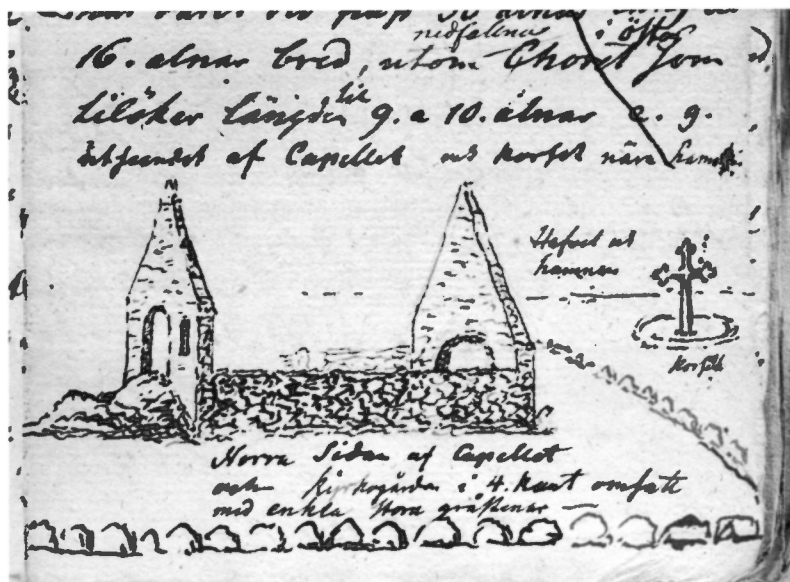 nedfallnas i öster
16. alnar bred, utom Choret som
tilöker längden til 9. a 10. alnar e. g.
af Capellet vid Korset nära hamn
Hafvet vid
hamnen
Korset
Norra Sidan af Capellet
och Kyrkogården i 4. kant omfatt
med enkla stora gråstenar —